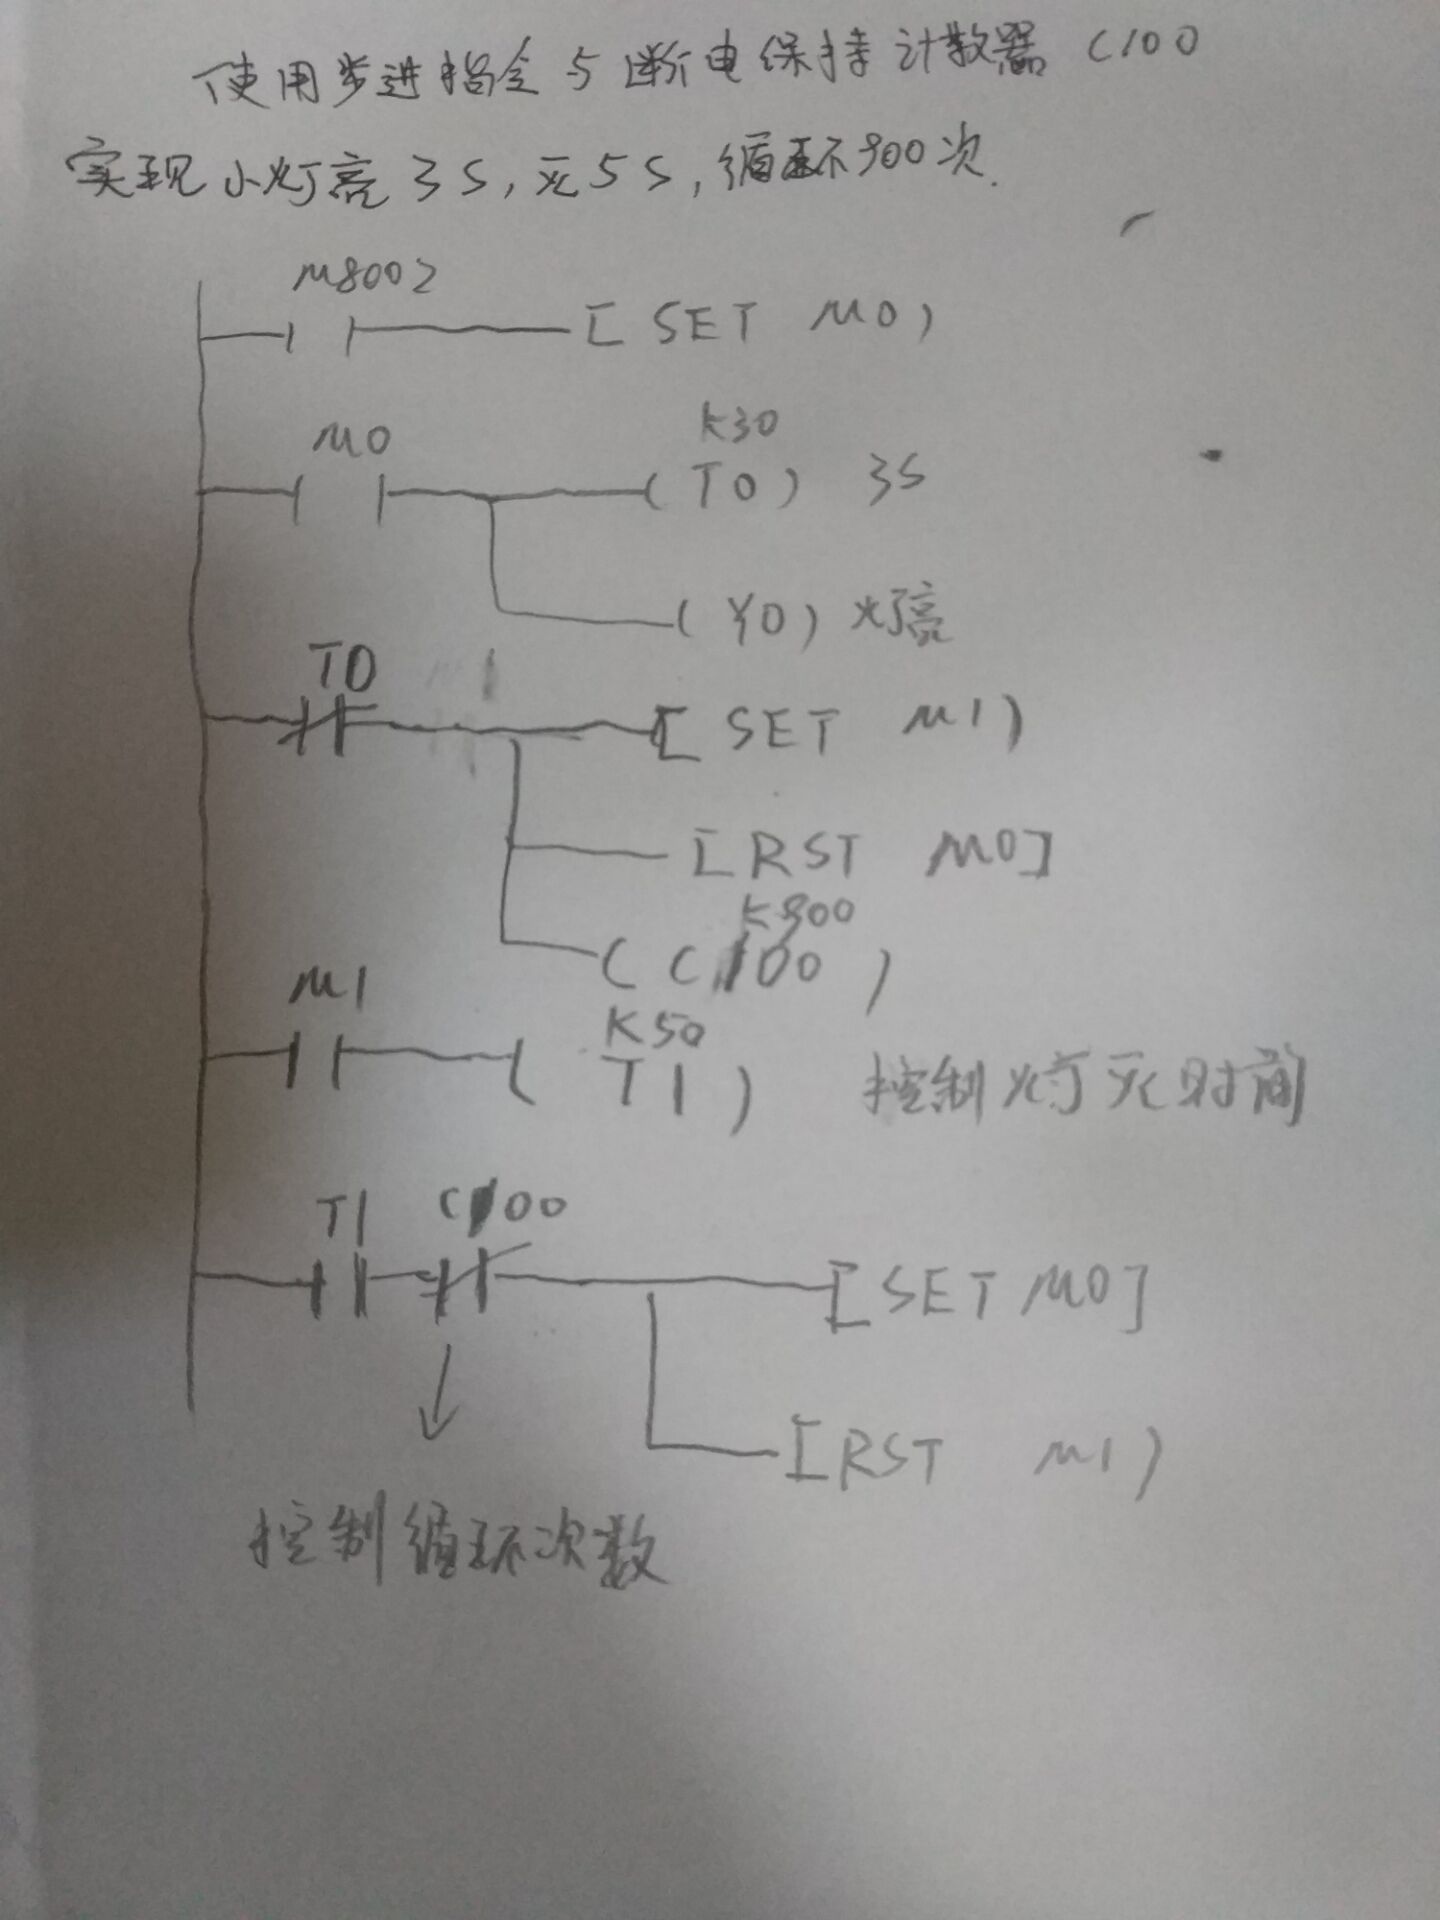 使用步进指令与断电保持计数器 C100
实现小灯亮3S,灭5S,循环900次.
M8002
[ SET M0)
M0
K30
(T0) 3S
(Y0) 灯亮
T0
[ SET M1)
[RST M0]
K900
(C100)
M1
K50
(T1) 控制灯灭时间
T1 C100
[SET M0]
[RST M1)
控制循环次数